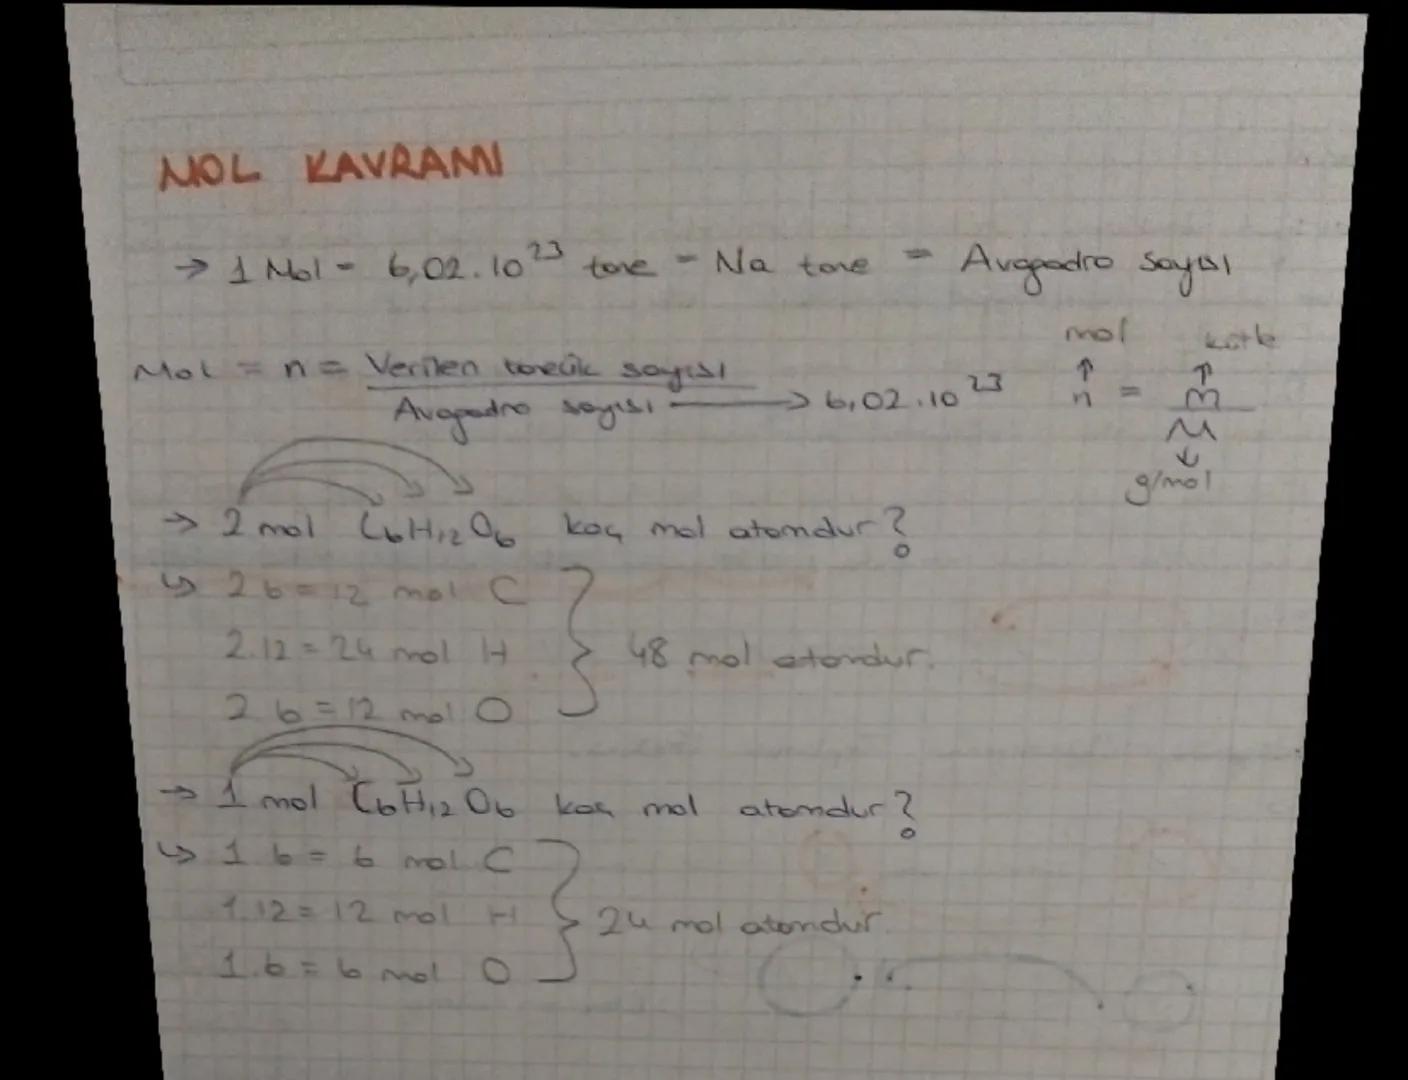 MOL KAVRAMI
→ 1 Mol = 6,02.10²³ tane = Na tane = Avogadro sayısı
mol kütle
Mol = n = Verilen tanecik sayısı ↑ ↑
Avogadro sayısı → 6,02.10²³ n = m
M
↓
g/mol
→ 2 mol C₆H₁₂O₆ kaç mol atomdur?
↳ 2.6 = 12 mol C
2.12 = 24 mol H } 48 mol atomdur.
2.6 = 12 mol O
→ 1 mol C₆H₁₂O₆ kaç mol atomdur?
↳ 1.6 = 6 mol C
1.12 = 12 mol H } 24 mol atomdur.
1.6 = 6 mol O